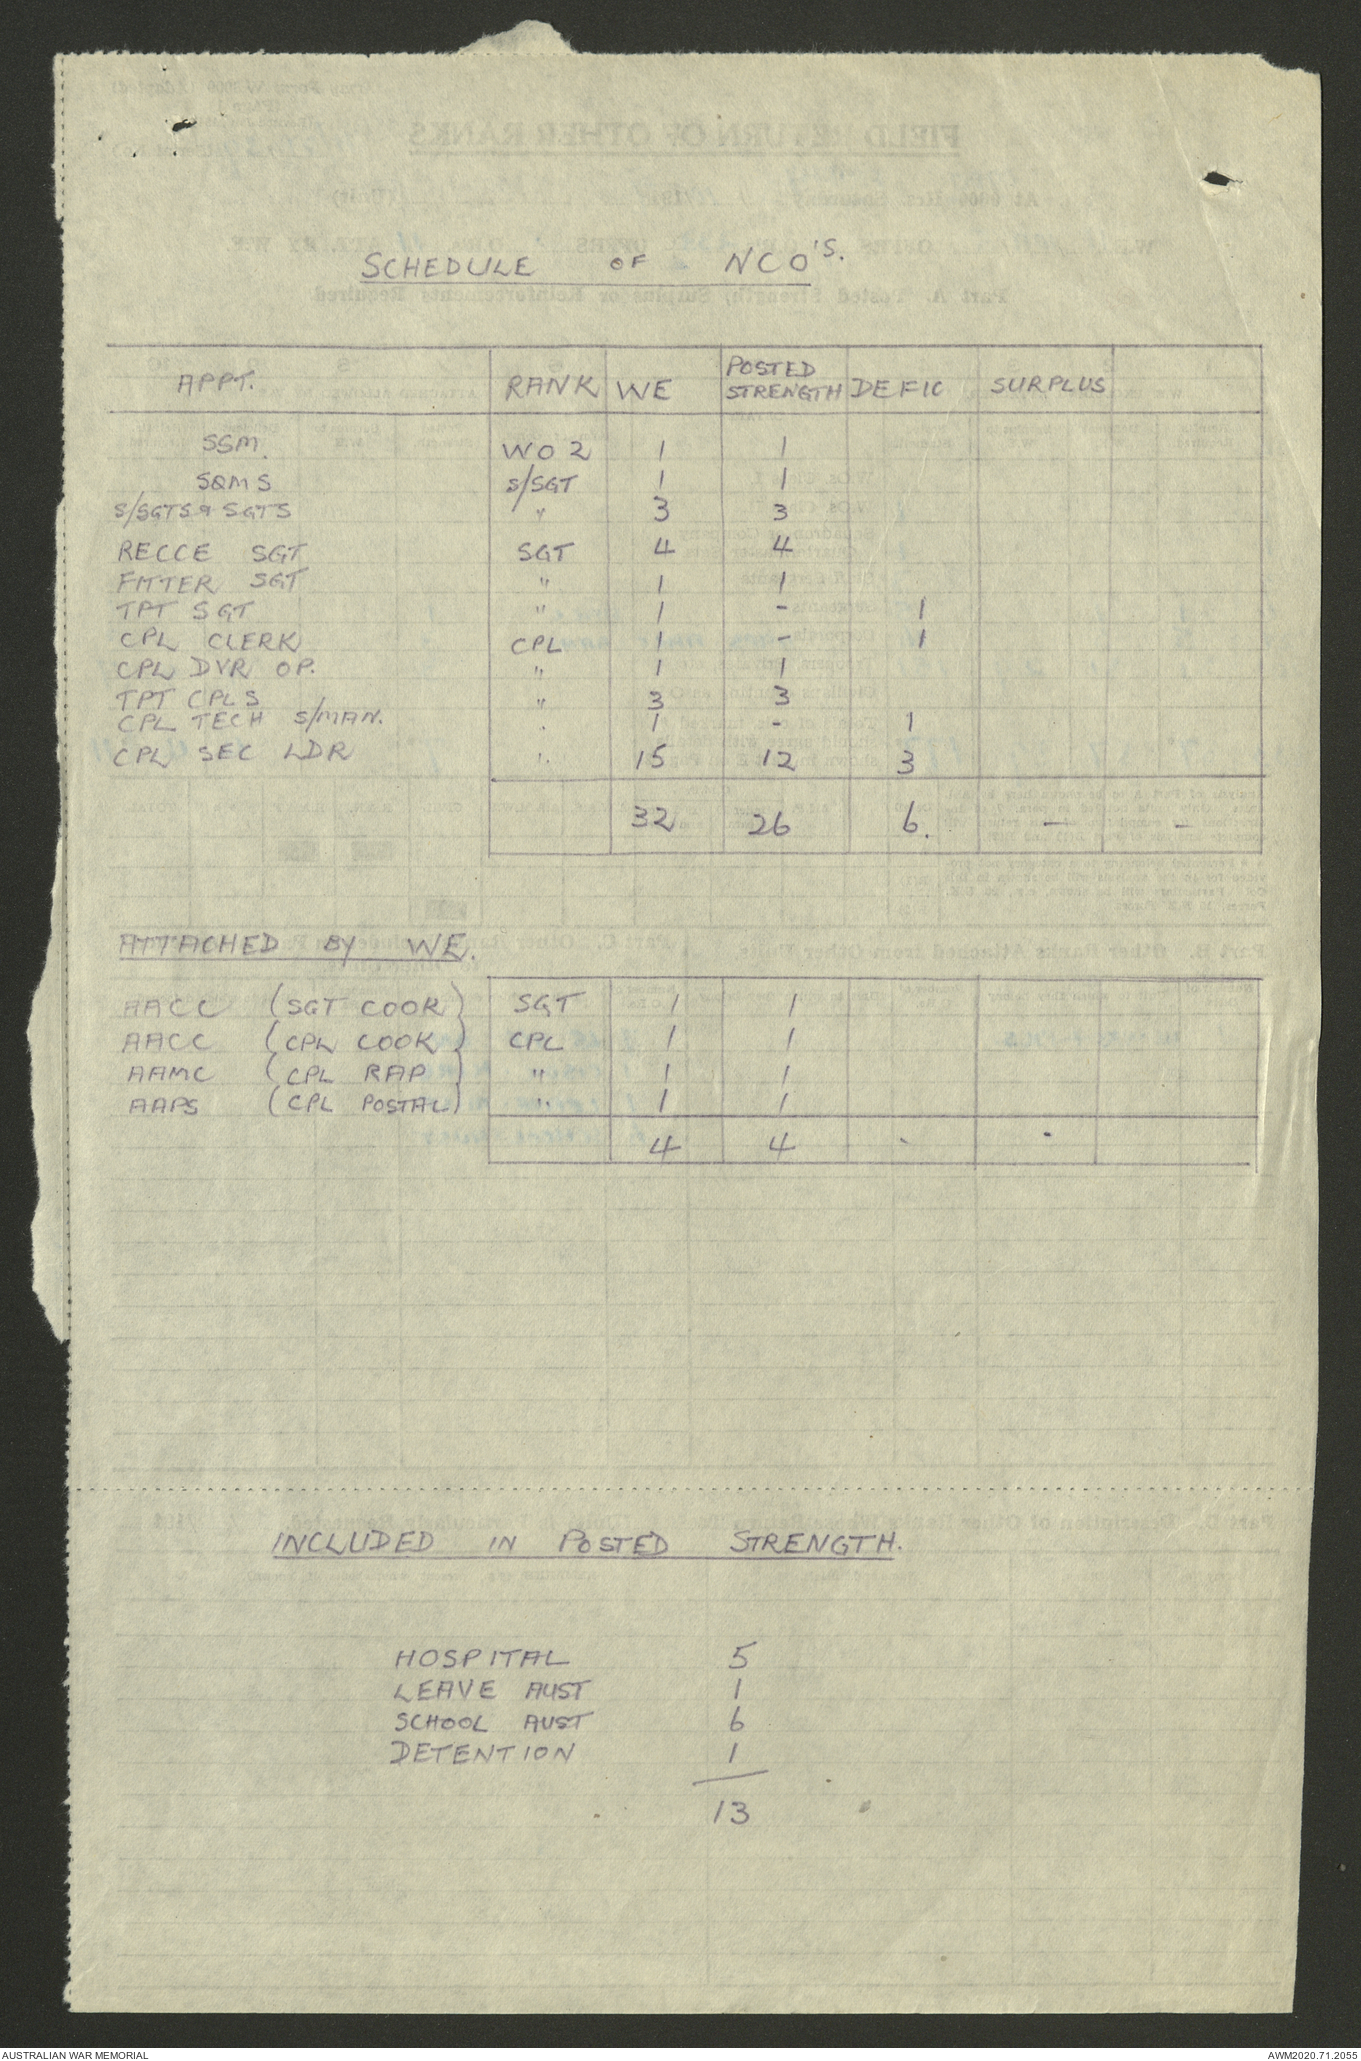 SCHEDULE OF NCO'S.
APPT. RANK WE POSTED STRENGTH DEFIC SURPLUS
SSM. WO2 1 1
SQMS S/SGT 1 1
S/SGTS & SGTS " 3 3
RECCE SGT SGT 4 4
FITTER SGT " 1 1
TPT SGT " 1 - 1
CPL CLERK CPL 1 - 1
CPL DVR OP. " 1 1
TPT CPLS " 3 3
CPL TECH S/MAN. . 1 - 1
CPL SEC LDR " 15 12 3
32 26 6. - -
ATTACHED BY WE.
AACC (SGT COOK) SGT 1 1
AACC (CPL COOK) CPL 1 1
AAMC (CPL RAP) " 1 1
AAPS (CPL POSTAL) " 1 1
4 4 - -
INCLUDED IN POSTED STRENGTH.
HOSPITAL 5
LEAVE AUST 1
SCHOOL AUST 6
DETENTION 1
13
AUSTRALIAN WAR MEMORIAL AWM2020.71.2055